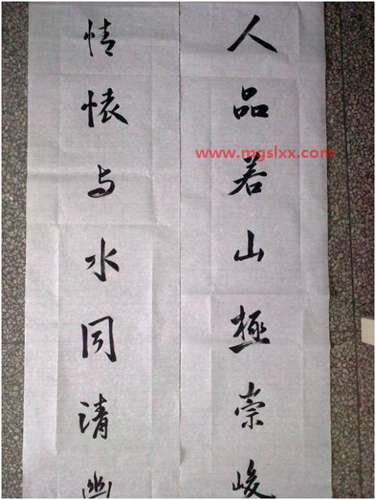 人品若山極崇峻
情懷与水同清幽
www.mgslxx.com